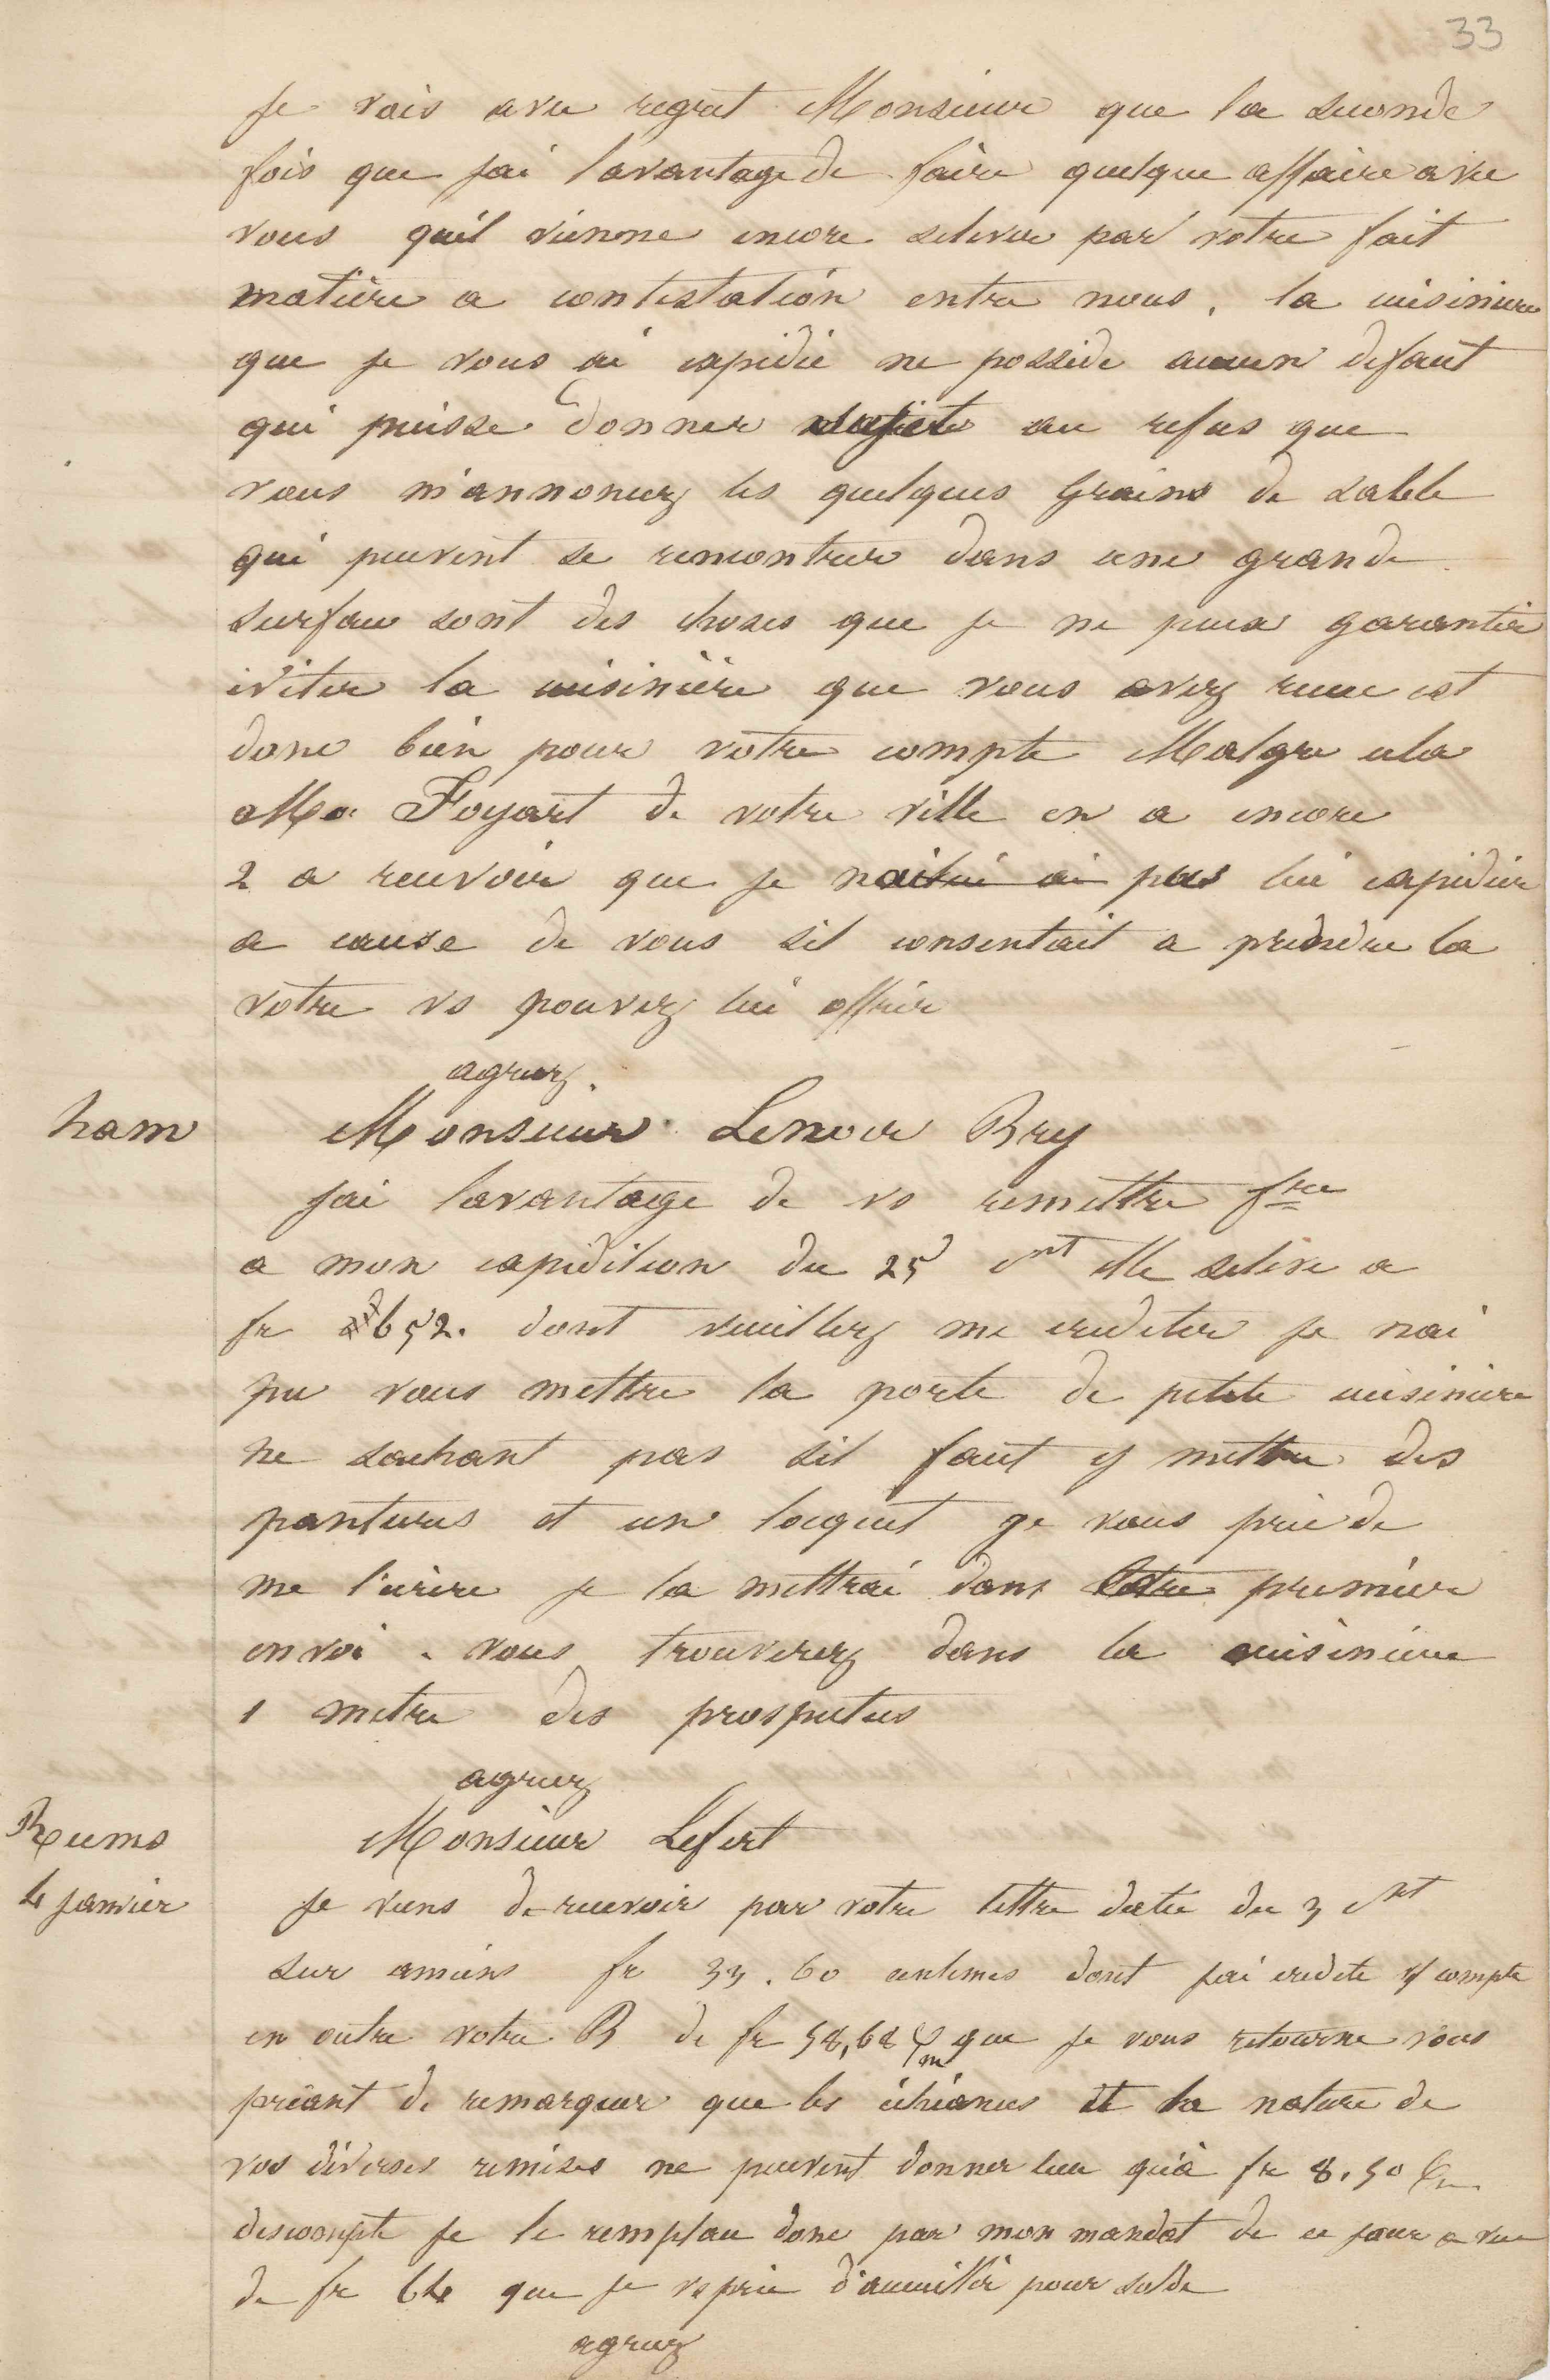 33
je vois avec regret Monsieur que la seconde
fois que jai lavantage de faire quelque affaire avec
vous quil vienne encore selever par votre fait
matière a contestation entre nous. la cuisiniere
que je vous ai expidié ne posside aucun defaut
qui puisse donner sujet au refus que
vous m'annoncez les quelques Grains de sable
qui peuvent se rencontrer dans une grande
surface sont des choses que je ne peux garantir
eviter la cuisinière que vous avez recue est
donc bien pour votre compte Malgre cela
Mr Foyart de votre ville en a encore
2 a recevoir que je pas lui expidier
a cause de vous sil consentait a prendre la
votre vs pouvez lui offrir
agreez.
ham
Monsieur Lenoir Bry
jai lavantage de vs remettre fre
a mon expidition du 25 ct elle seleve a
fr 652. dont veuillez me crediter je nai
pu vous mettre la porte de petite cuisiniere
ne sachant pas sil faut y mettre des
pantures et un loquet ge vous prie de
me l'ecrire je la mettrai dans premier
envoi. vous trouverez dans la cuisiniere
1 metre des prospectus
agreez
Reims
4 janvier
Monsieur Lefert
je viens de recevoir par votre lettre datée du 3 ct
sur amiens fr 33.60 centimes dont jai credité vf compte
en outre votre B de fr 58,68 que je vous retourne vous
priant de remarquer que les échéances et la nature de
vos diverses remises ne peuvent donner lieu qu'à fr 8.50
descompte je le remplace donc par mon mandat de ce jour a vue
de fr 64 que je vs prie d'accueillir pour solde
agreez